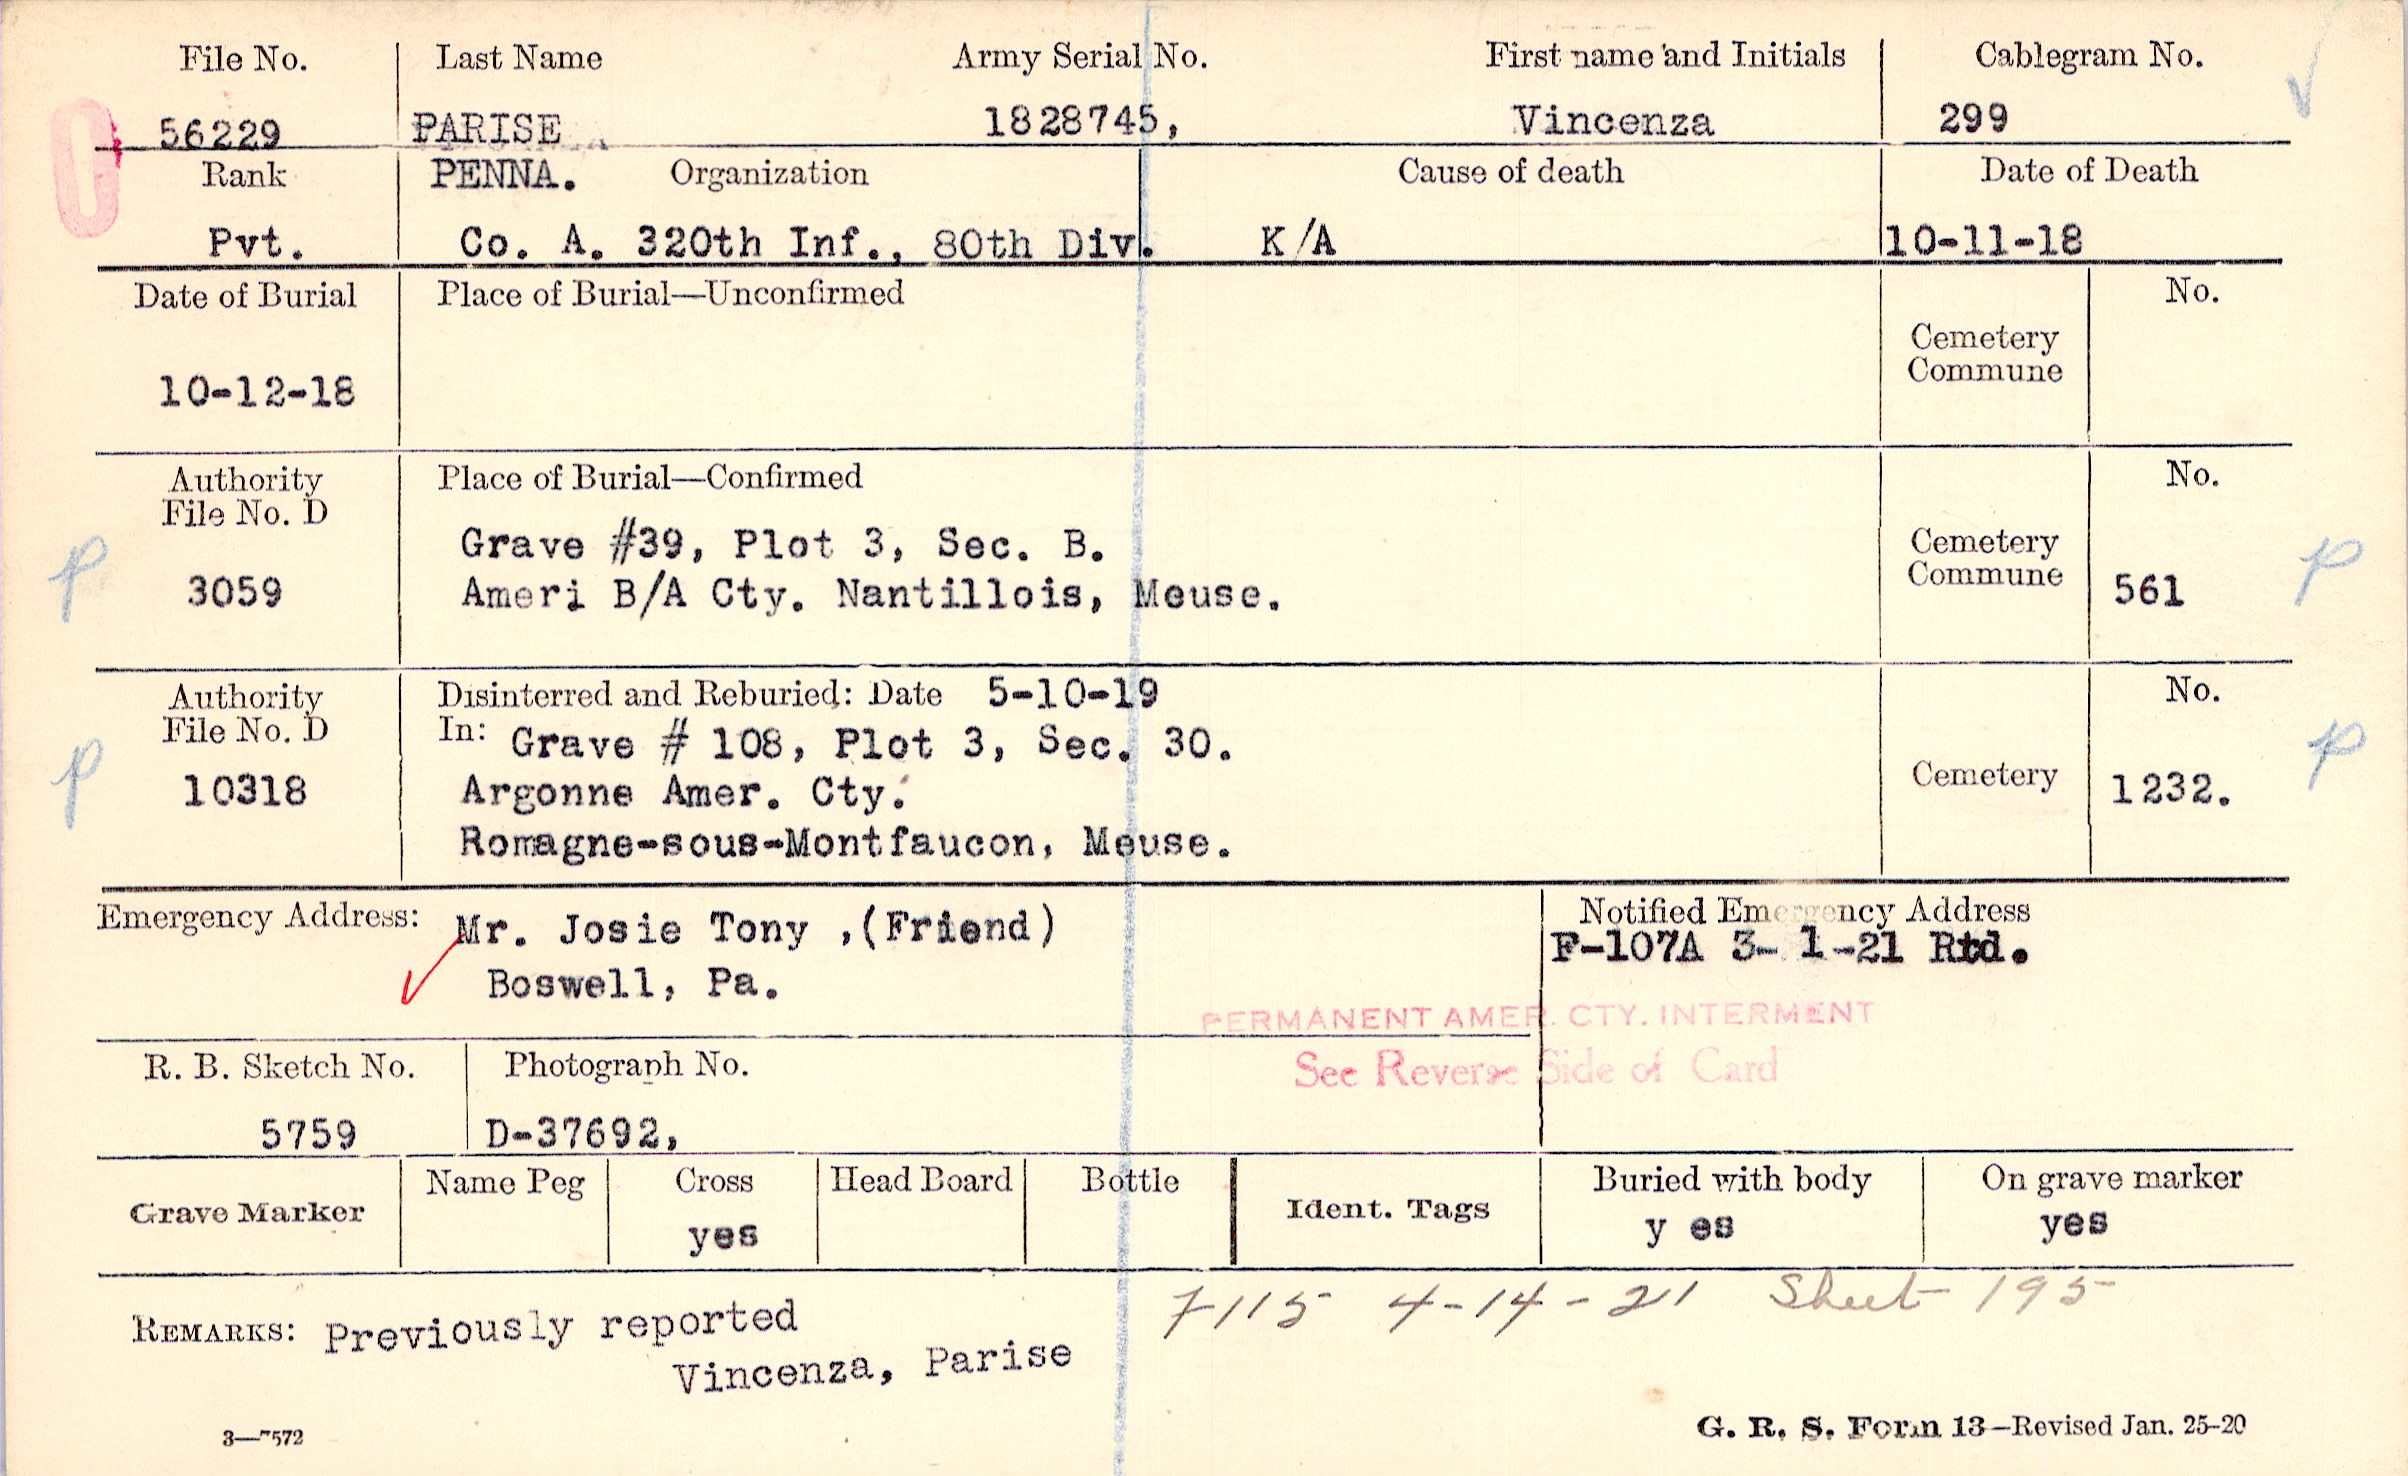 File No. Last Name Army Serial No. First name and Initials Cablegram No.
56229 PARISE 1828745, Vincenza 299
Rank PENNA. Organization Cause of death Date of Death
Pvt. Co. A. 320th Inf., 80th Div. K/A 10-11-18
Date of Burial Place of Burial—Unconfirmed No.
Cemetery
Commune
10-12-18
Authority Place of Burial—Confirmed No.
File No. D
Grave #39, Plot 3, Sec. B. Cemetery
P 3059 Ameri B/A Cty. Nantillois, Meuse. Commune 561 P
Authority Disinterred and Reburied: Date 5-10-19 No.
File No. D In: Grave # 108, Plot 3, Sec. 30.
P 10318 Argonne Amer. Cty. Cemetery 1232. P
Romagne-sous-Montfaucon, Meuse.
Emergency Address: Mr. Josie Tony ,(Friend) Notified Emergency Address
F-107A 3- 1-21 Rtd.
Boswell, Pa.
PERMANENT AMER. CTY. INTERMENT
See Reverse Side of Card
R. B. Sketch No. Photograph No.
5759 D-37692,
Grave Marker Name Peg Cross Head Board Bottle Ident. Tags Buried with body On grave marker
yes y es yes
7115 4-14-21 Sheet 195
REMARKS: Previously reported
Vincenza, Parise
3—7572 G. R. S. Form 13—Revised Jan. 25-20